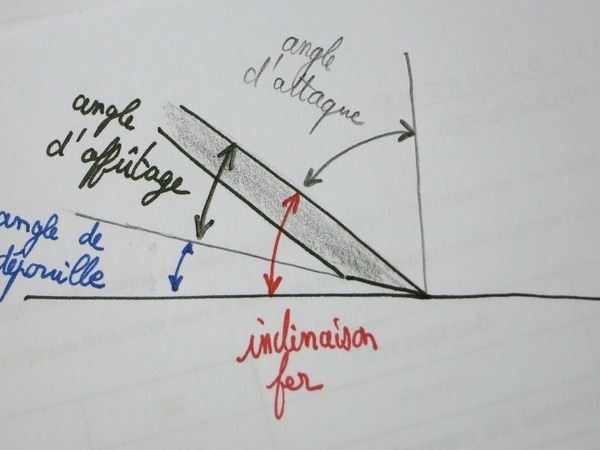 angle
d'attaque
angle
d'affûtage
angle de
dépouille
inclinaison
fer